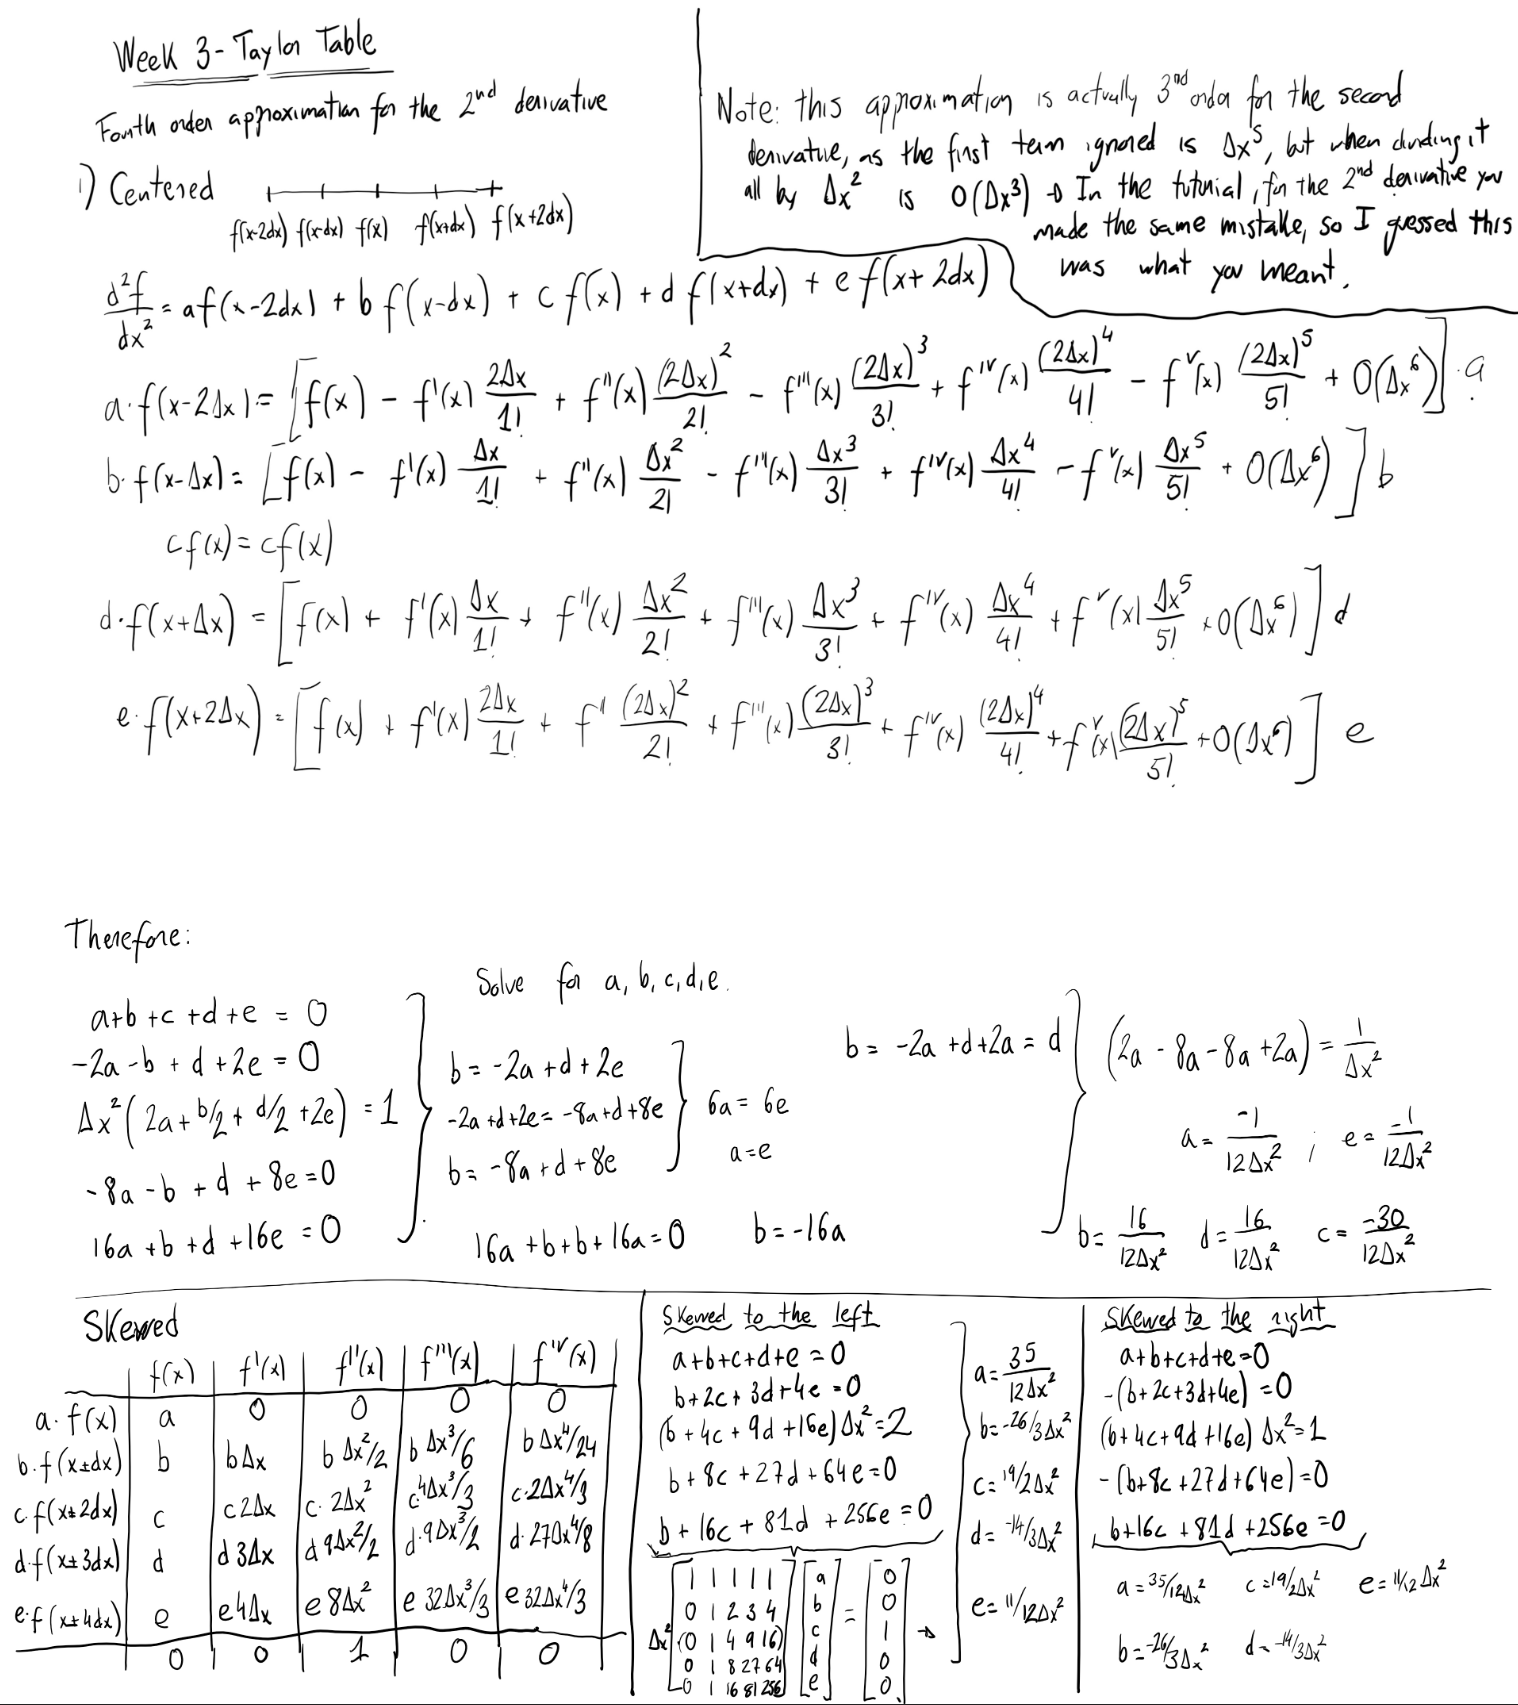 Week 3 - Taylor Table
Fourth order approximation for the 2nd derivative
1) Centered
f(x-2dx) f(x-dx) f(x) f(x+dx) f(x+2dx)
Note: this approximation is actually 3nd order for the second
derivative, as the first term ignored is Δx^5, but when dividing it
all by Δx^2 is O(Δx^3) → In the tutorial, for the 2nd derivative you
made the same mistake, so I guessed this
was what you meant.
d^2f/dx^2 = a f(x-2dx) + b f(x-dx) + c f(x) + d f(x+dx) + e f(x+2dx)
a·f(x-2Δx) = [f(x) - f'(x) 2Δx/1! + f''(x) (2Δx)^2/2! - f'''(x) (2Δx)^3/3! + f^IV(x) (2Δx)^4/4! - f^V(x) (2Δx)^5/5! + O(Δx^6)]·a
b·f(x-Δx) = [f(x) - f'(x) Δx/1! + f''(x) Δx^2/2! - f'''(x) Δx^3/3! + f^IV(x) Δx^4/4! - f^V(x) Δx^5/5! + O(Δx^6)] b
c f(x) = c f(x)
d·f(x+Δx) = [f(x) + f'(x) Δx/1! + f''(x) Δx^2/2! + f'''(x) Δx^3/3! + f^IV(x) Δx^4/4! + f^V(x) Δx^5/5! + O(Δx^6)] d
e·f(x+2Δx) = [f(x) + f'(x) 2Δx/1! + f'' (2Δx)^2/2! + f'''(x) (2Δx)^3/3! + f^IV(x) (2Δx)^4/4! + f^V(x) (2Δx)^5/5! + O(Δx^6)] e
Therefore:
a+b+c+d+e = 0
-2a-b+d+2e = 0
Δx^2(2a+b/2+d/2+2e) = 1
-8a-b+d+8e=0
16a+b+d+16e = 0
Solve for a,b,c,d,e.
b = -2a+d+2e
-2a+d+2e = -8a+d+8e
b = -8a+d+8e
6a = 6e
a=e
16a+b+b+16a=0 b=-16a
b = -2a+d+2a = d
(2a-8a-8a+2a) = 1/Δx^2
a = -1/12Δx^2 ; e = -1/12Δx^2
b = 16/12Δx^2 d = 16/12Δx^2 c = -30/12Δx^2
Skewed
f(x) f'(x) f''(x) f'''(x) f^IV(x)
a·f(x) a 0 0 0 0
b·f(x±dx) b bΔx b Δx^2/2 b Δx^3/6 b Δx^4/24
c·f(x±2dx) c c2Δx c·2Δx^2 c·4Δx^3/3 c·2Δx^4/3
d·f(x±3dx) d d3Δx d9Δx^2/2 d·9Δx^3/2 d·27Δx^4/8
e·f(x±4dx) e e4Δx e8Δx^2 e 32Δx^3/3 e 32Δx^4/3
0 0 1 0 0
Skewed to the left
a+b+c+d+e=0
b+2c+3d+4e=0
(b+4c+9d+16e)Δx^2=2
b+8c+27d+64e=0
b+16c+81d+256e=0
1 1 1 1 1 a 0
0 1 2 3 4 b 0
Δx^2(0 1 4 9 16) c = 1 →
0 1 8 27 64 d 0
0 1 16 81 256 e 0
a = 35/12Δx^2
b = -26/3Δx^2
c = 19/2Δx^2
d = -14/3Δx^2
e = 11/12Δx^2
Skewed to the right
a+b+c+d+e=0
-(b+2c+3d+4e)=0
(b+4c+9d+16e)Δx^2=1
-(b+8c+27d+64e)=0
b+16c+81d+256e=0
a = 35/12Δx^2 c = 19/2Δx^2 e = 11/12Δx^2
b = -26/3Δx^2 d = -14/3Δx^2